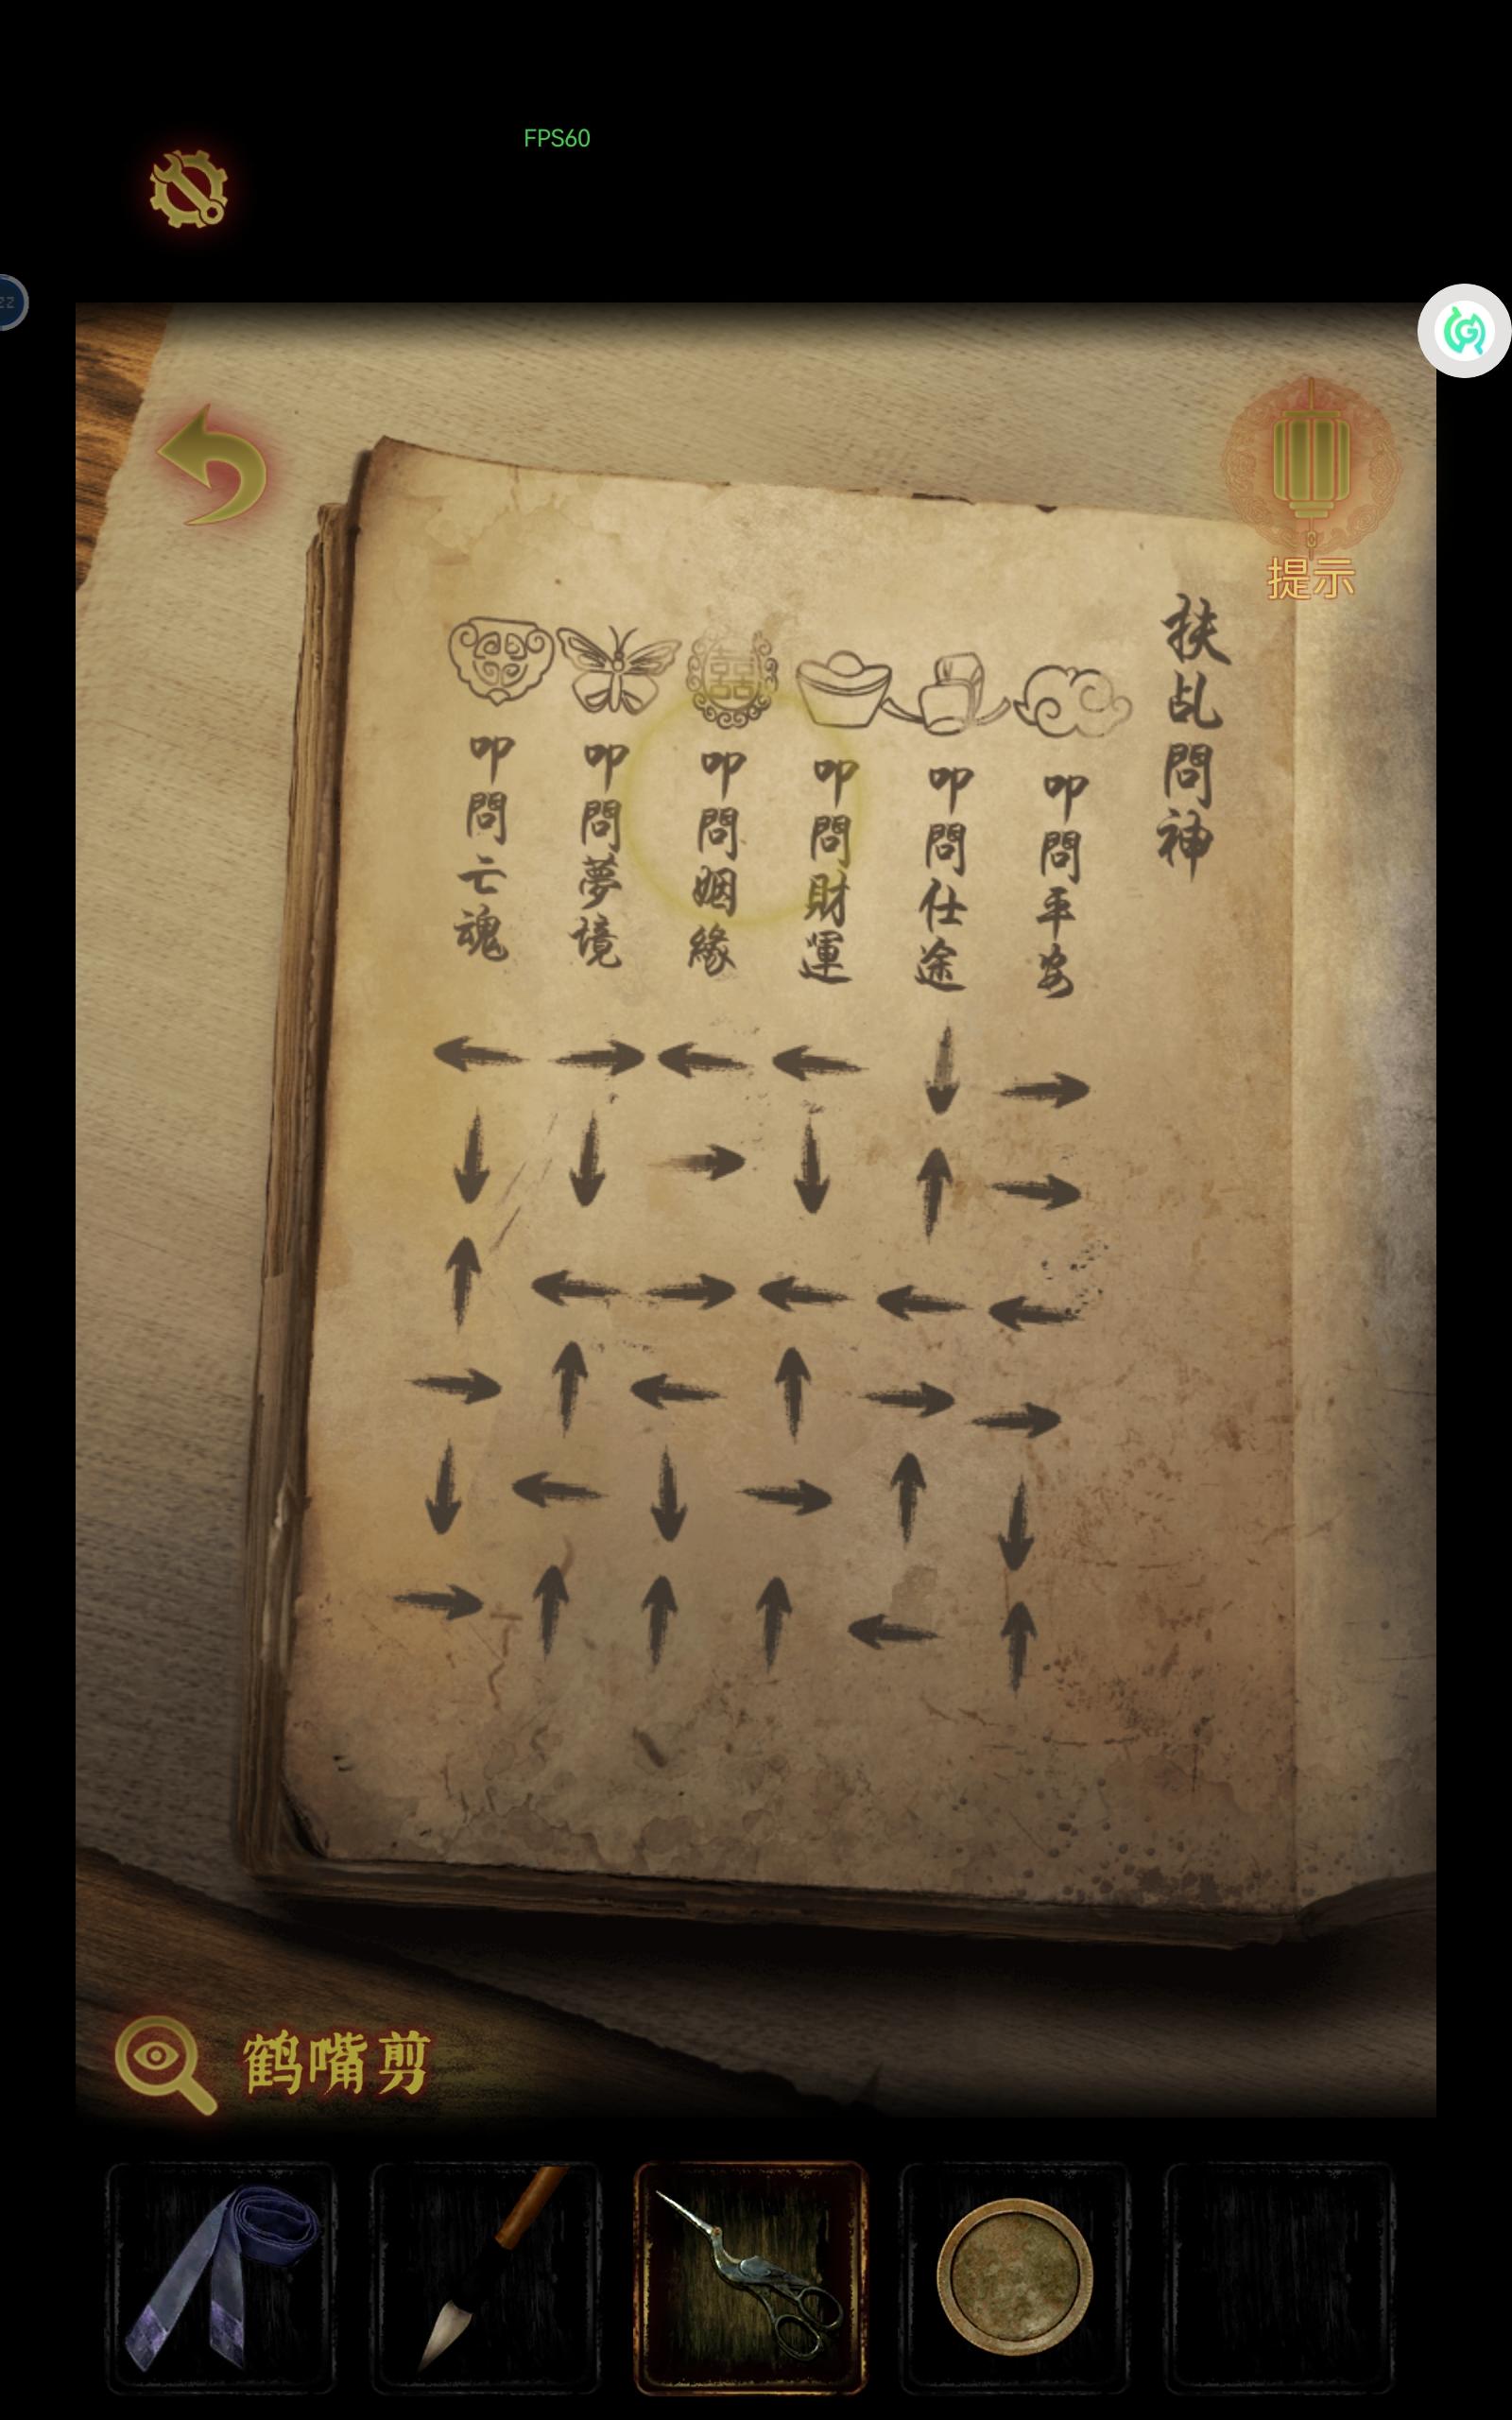 FPS60
提示
扶乩問神
叩問平安
叩問仕途
叩問財運
叩問姻緣
叩問夢境
叩問亡魂
鹤嘴剪